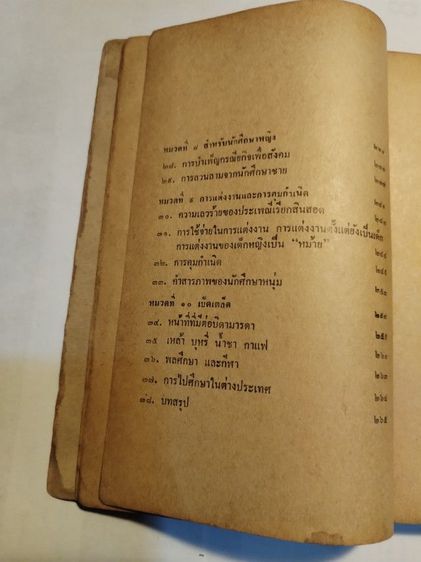 หมวดที่ ๘ สำหรับนักศึกษาหญิง
๒๘. การบำเพ็ญกรณียกิจเพื่อสังคม
๒๙. การลวนลามจากนักศึกษาชาย
หมวดที่ ๙ การแต่งงานและการคุมกำเนิด
๓๐. ความเลวร้ายของประเพณีเรียกสินสอด
๓๑. การใช้จ่ายในการแต่งงาน การแต่งงานตั้งแต่ยังเป็นเด็ก
การแต่งงานของเด็กหญิงเป็น "หม้าย"
๓๒. การคุมกำเนิด
๓๓. คำสารภาพของนักศึกษาหนุ่ม
หมวดที่ ๑๐ เบ็ดเตล็ด
๓๔. หน้าที่ที่มีต่อบิดามารดา
๓๕ เหล้า บุหรี่ น้ำชา กาแฟ
๓๖. พลศึกษา และกีฬา
๒๖๓
๓๗. การไปศึกษาในต่างประเทศ
๒๖๔
๓๘. บทสรุป
๒๖๕